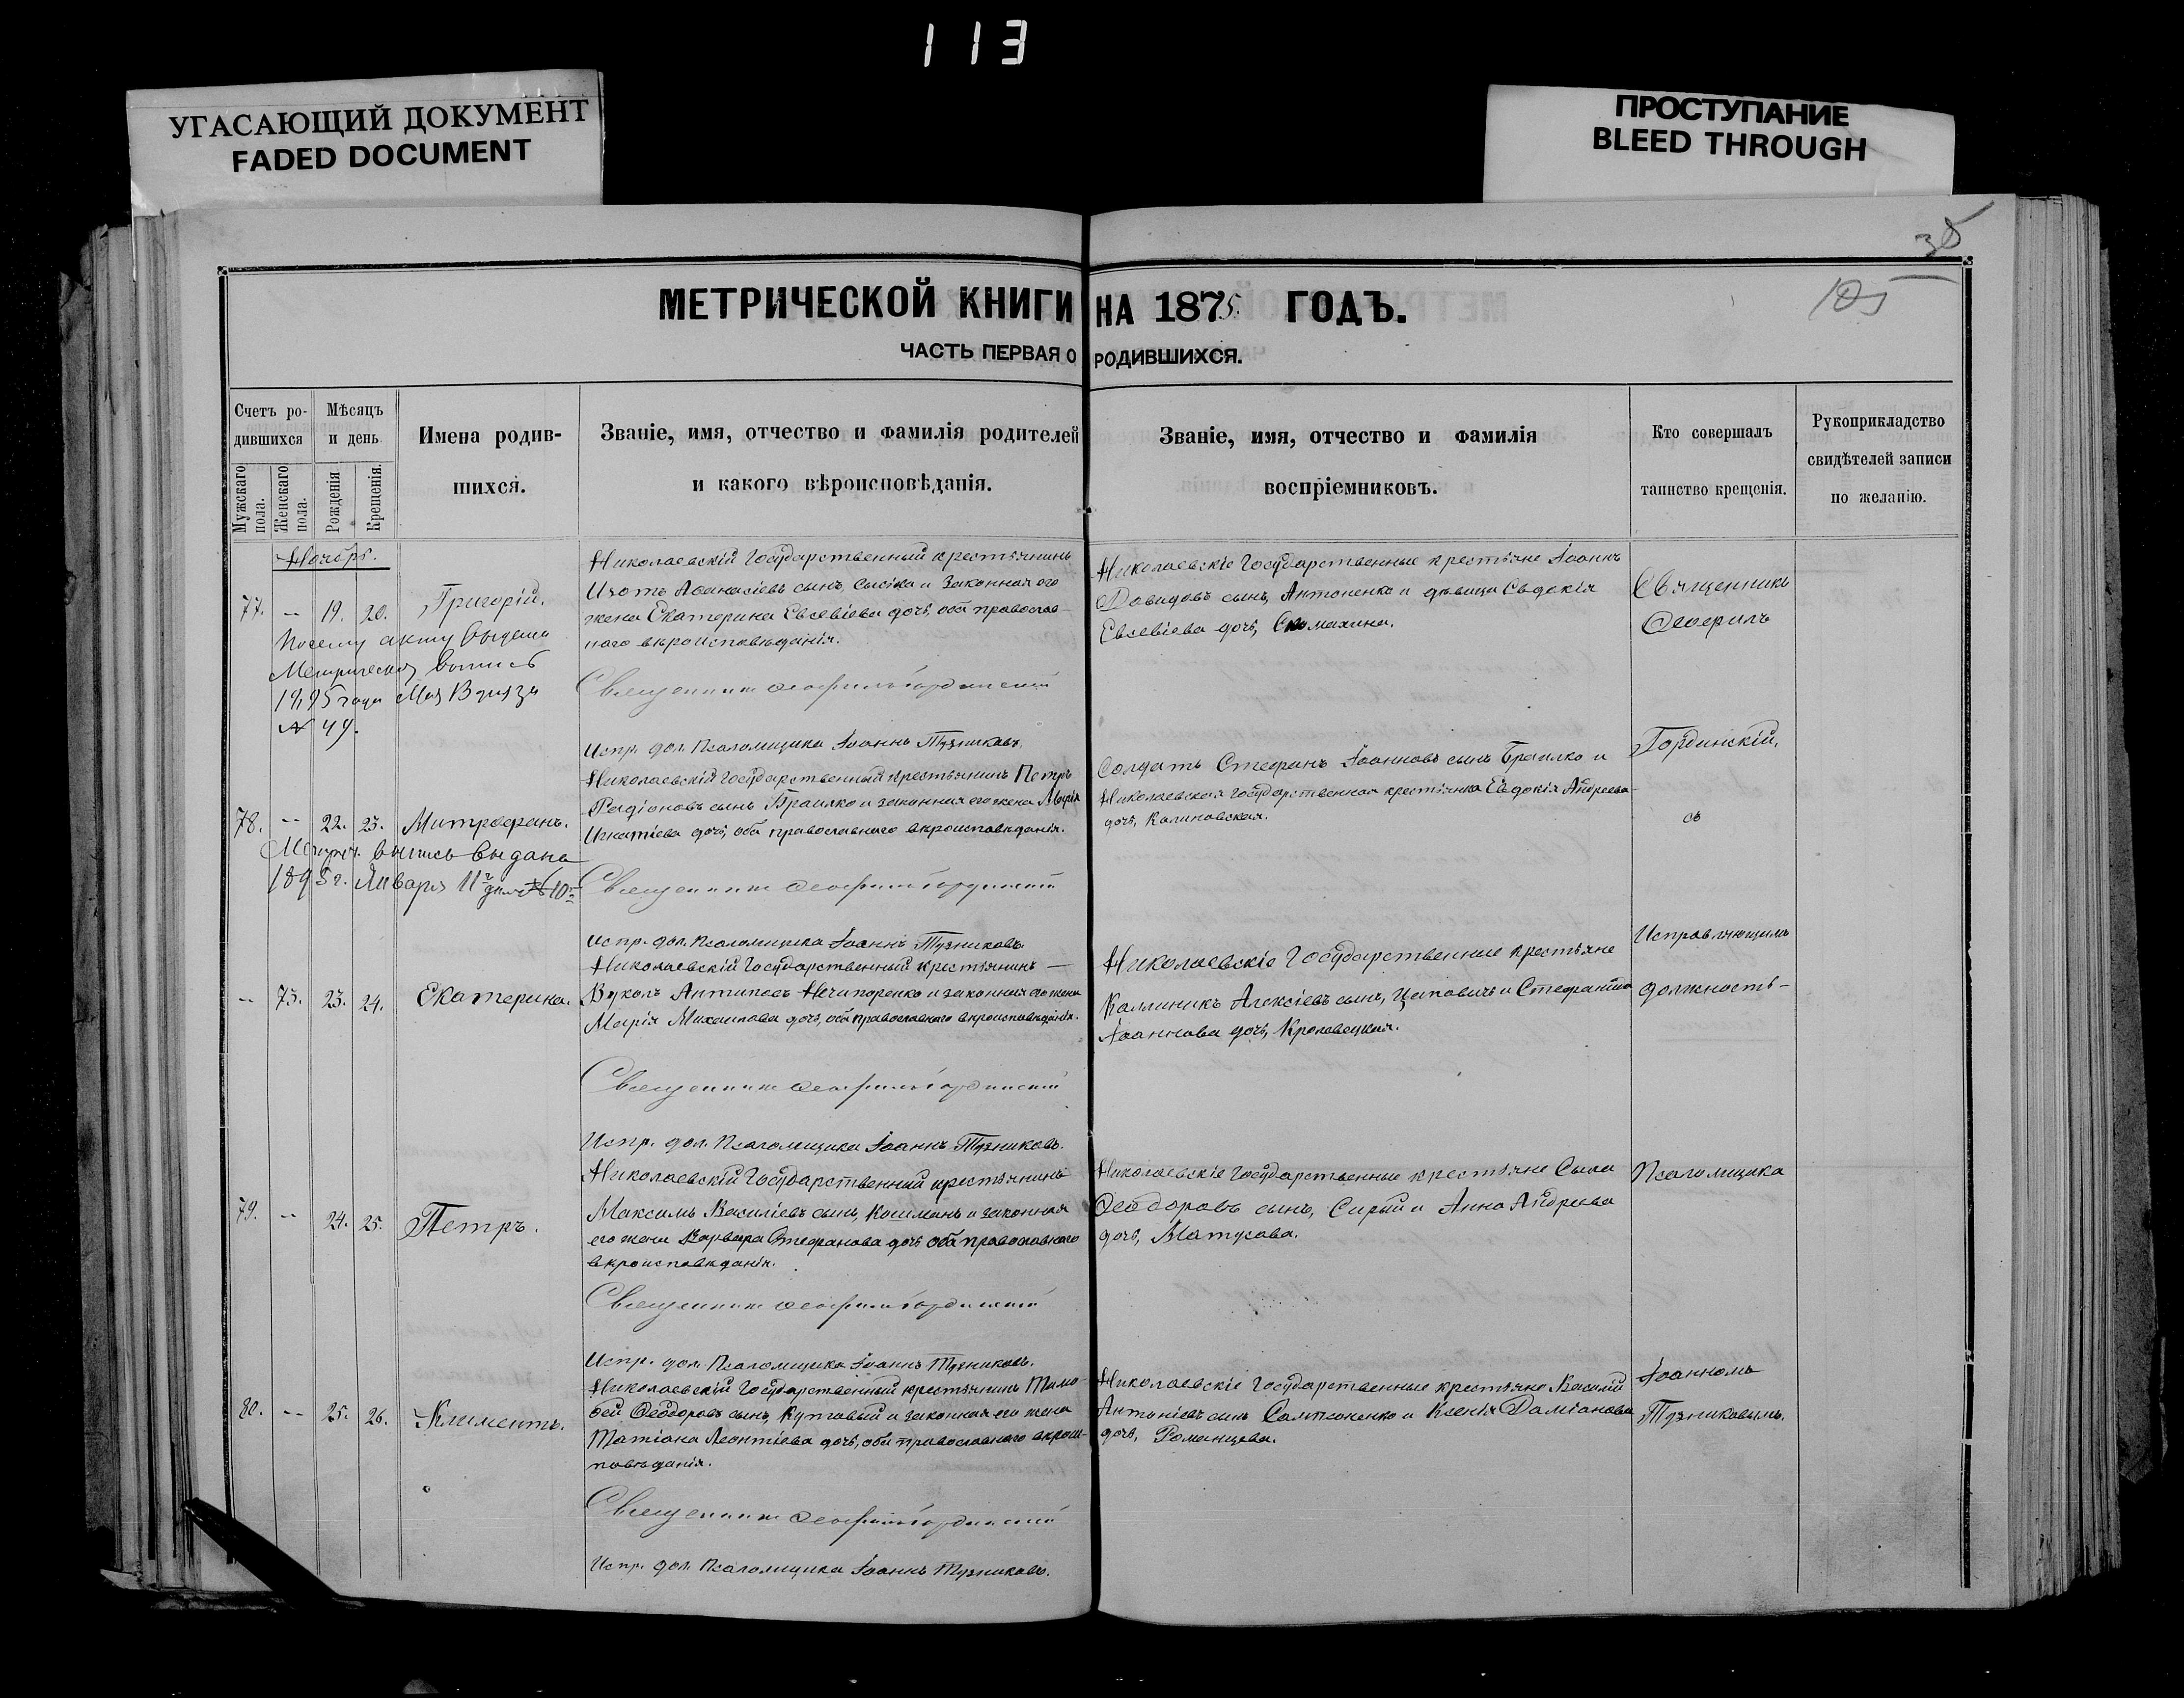 113
УГАСАЮЩИЙ ДОКУМЕНТ
FADED DOCUMENT
ПРОСТУПАНИЕ
BLEED THROUGH
35
105
МЕТРИЧЕСКОЙ КНИГИ НА 1875. ГОДЪ.
ЧАСТЬ ПЕРВАЯ О РОДИВШИХСЯ.
Счетъ ро-
дившихся
Мужскаго
пола.
Женскаго
пола.
Мѣсяцъ
и день
Рожденія
Крещенія.
Имена родив-
шихся.
Званіе, имя, отчество и фамилія родителей
и какого вѣроисповѣданія.
Званіе, имя, отчество и фамилія
воспріемниковъ.
Кто совершалъ
таинство крещенія.
Рукоприкладство
свидѣтелей записи
по желанію.
Ноября.
77. -- 19. 20. Григорій.
По сему акту выдана
Метрическая выпись
1895 года Мая
№ 49.
Николаевскій Государственный крестьянинъ
Изотъ Аѳанасіевъ сынъ, Сысіка и законная его
жена Екатерина Евсевіева дочь, оба православ-
наго вѣроисповѣданія.
Священникъ Ѳеофилъ Гординскій
Испр. дол. Псаломщика Іоаннъ Тузниковъ.
Николаевскіе Государственные крестьяне Іоаннъ
Давидовъ сынъ, Антоненко и дѣвица Евдокія
Евсевіева дочь, Саломахина.
78. -- 22. 23. Митрофанъ.
Метрич. выпись выдана
1895 г. Января 11 дня № 10
Николаевскій Государственный крестьянинъ Петръ
Родіоновъ сынъ Браилко и законная его жена Марія
Игнатіева дочь, оба православнаго вѣроисповѣданія.
Священникъ Ѳеофилъ Гординскій
Испр. дол. Псаломщика Іоаннъ Тузниковъ.
Солдатъ Стефанъ Іоанновъ сынъ Браилко и
Николаевская Государственная крестьянка Евдокія Андреева
дочь, Калиновская.
-- 73. 23. 24. Екатерина.
Николаевскій Государственный крестьянинъ —
Вуколъ Антиповъ Нечипоренко и законная его жена
Марія Михаилова дочь, оба православнаго вѣроисповѣданія.
Священникъ Ѳеофилъ Гординскій
Испр. дол. Псаломщика Іоаннъ Тузниковъ.
Николаевскіе Государственные крестьяне
Каллиникъ Алексіевъ сынъ, Цаповичъ и Стефанида
Іоаннова дочь, Кролевецкая.
79. -- 24. 25. Петръ.
Николаевскій Государственный крестьянинъ
Максимъ Василіевъ сынъ, Кошманъ и законная
его жена Варвара Стефанова дочь оба православнаго
вѣроисповѣданія.
Священникъ Ѳеофилъ Гординскій
Испр. дол. Псаломщика Іоаннъ Тузниковъ.
Николаевскіе Государственные крестьяне Сава
Ѳеодоровъ сынъ, Сирый и Анна Андреева
дочь, Матусова.
80. -- 25. 26. Климентъ.
Николаевскій Государственный крестьянинъ Тимо-
ѳей Ѳеодоровъ сынъ, Кутовый и законная его жена
Татіана Леонтіева дочь, оба православнаго вѣроис-
повѣданія.
Священникъ Ѳеофилъ Гординскій
Испр. дол. Псаломщика Іоаннъ Тузниковъ.
Николаевскіе Государственные крестьяне Василій
Антоніевъ сынъ Сампсоненко и Ксенія Даміанова
дочь, Романцева.
Священникъ
Ѳеофилъ
Гординскій,
съ
Исправляющимъ
должность-
Псаломщика
Іоанномъ
Тузниковымъ.